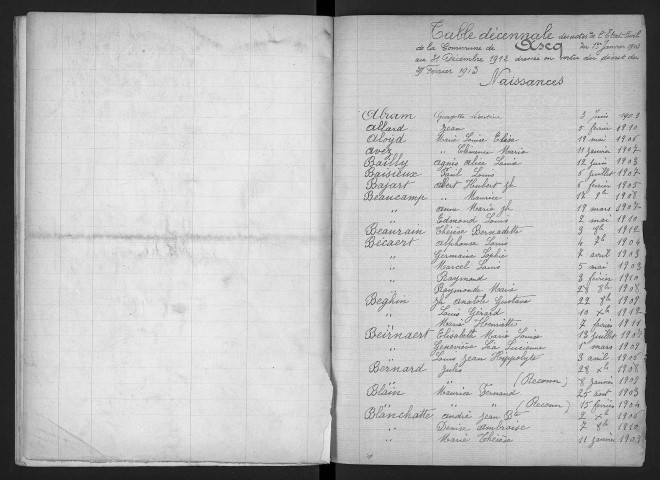 Table décennale des actes de l'Etat-Civil
de la Commune de Ascq du 1er Janvier 1903
au 31 Décembre 1912 dressée en vertu du décret du
Février 1913
Naissances
Abram Georgette 3 Juin 1909
Allard Jean 5 février 1910
Aloyd Marie Louise Elise 19 mai 1906
Avez " Clémence Maria 11 janvier 1907
Bailly Agnès Alice Louise 12 juin 1908
Baisieux Paul Louis 5 juillet 1907
Bajart Albert Hubert Jh 6 février 1905
Beaucamp " Maurice 17 9b 1908
" Anna Marie Jh 19 mars 1907
" Edmond Louis 2 mai 1910
Beaurain Thérèse Bernadette 3 8b 1912
Bécaert Alphonse Louis 4 7b 1904
" Germaine Sophie 7 avril 1903
" Marcel Louis 5 mai 1903
" Raymond 3 février 1910
" Raymonde Marie 28 8b 1908
Beghin Jh Anatole Gustave 22 8b 1909
" Louis Gérard 10 Xb 1912
" Marie Henriette 7 février 1911
Beirnaert Elisabeth Marie Louise 13 juillet
" Geneviève Léa Lucienne mars 1907
" Louis Jean Hippolyte 3 avril 1906
Bernard Jules 28 Xb 1908
" " (Reconn) 8 janvier 1909
Blain Maurice Fernand 25 août 1903
" " " (Reconn) 15 février 1904
Blanchatte André Jean Bte 2 Xb 1906
" Denise Ambroise 7 8b 1910
" Marie Thérèse 11 janvier 1909